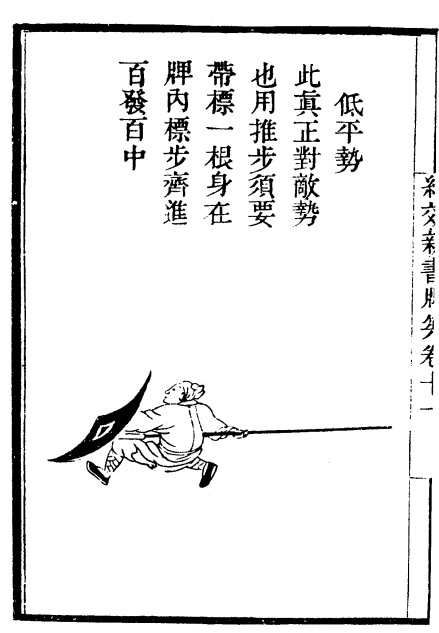 紀效新書牌筅卷十一
低平勢
此眞正對敵勢
也用推步須要
帶標一根身在
牌內標步齊進
百發百中